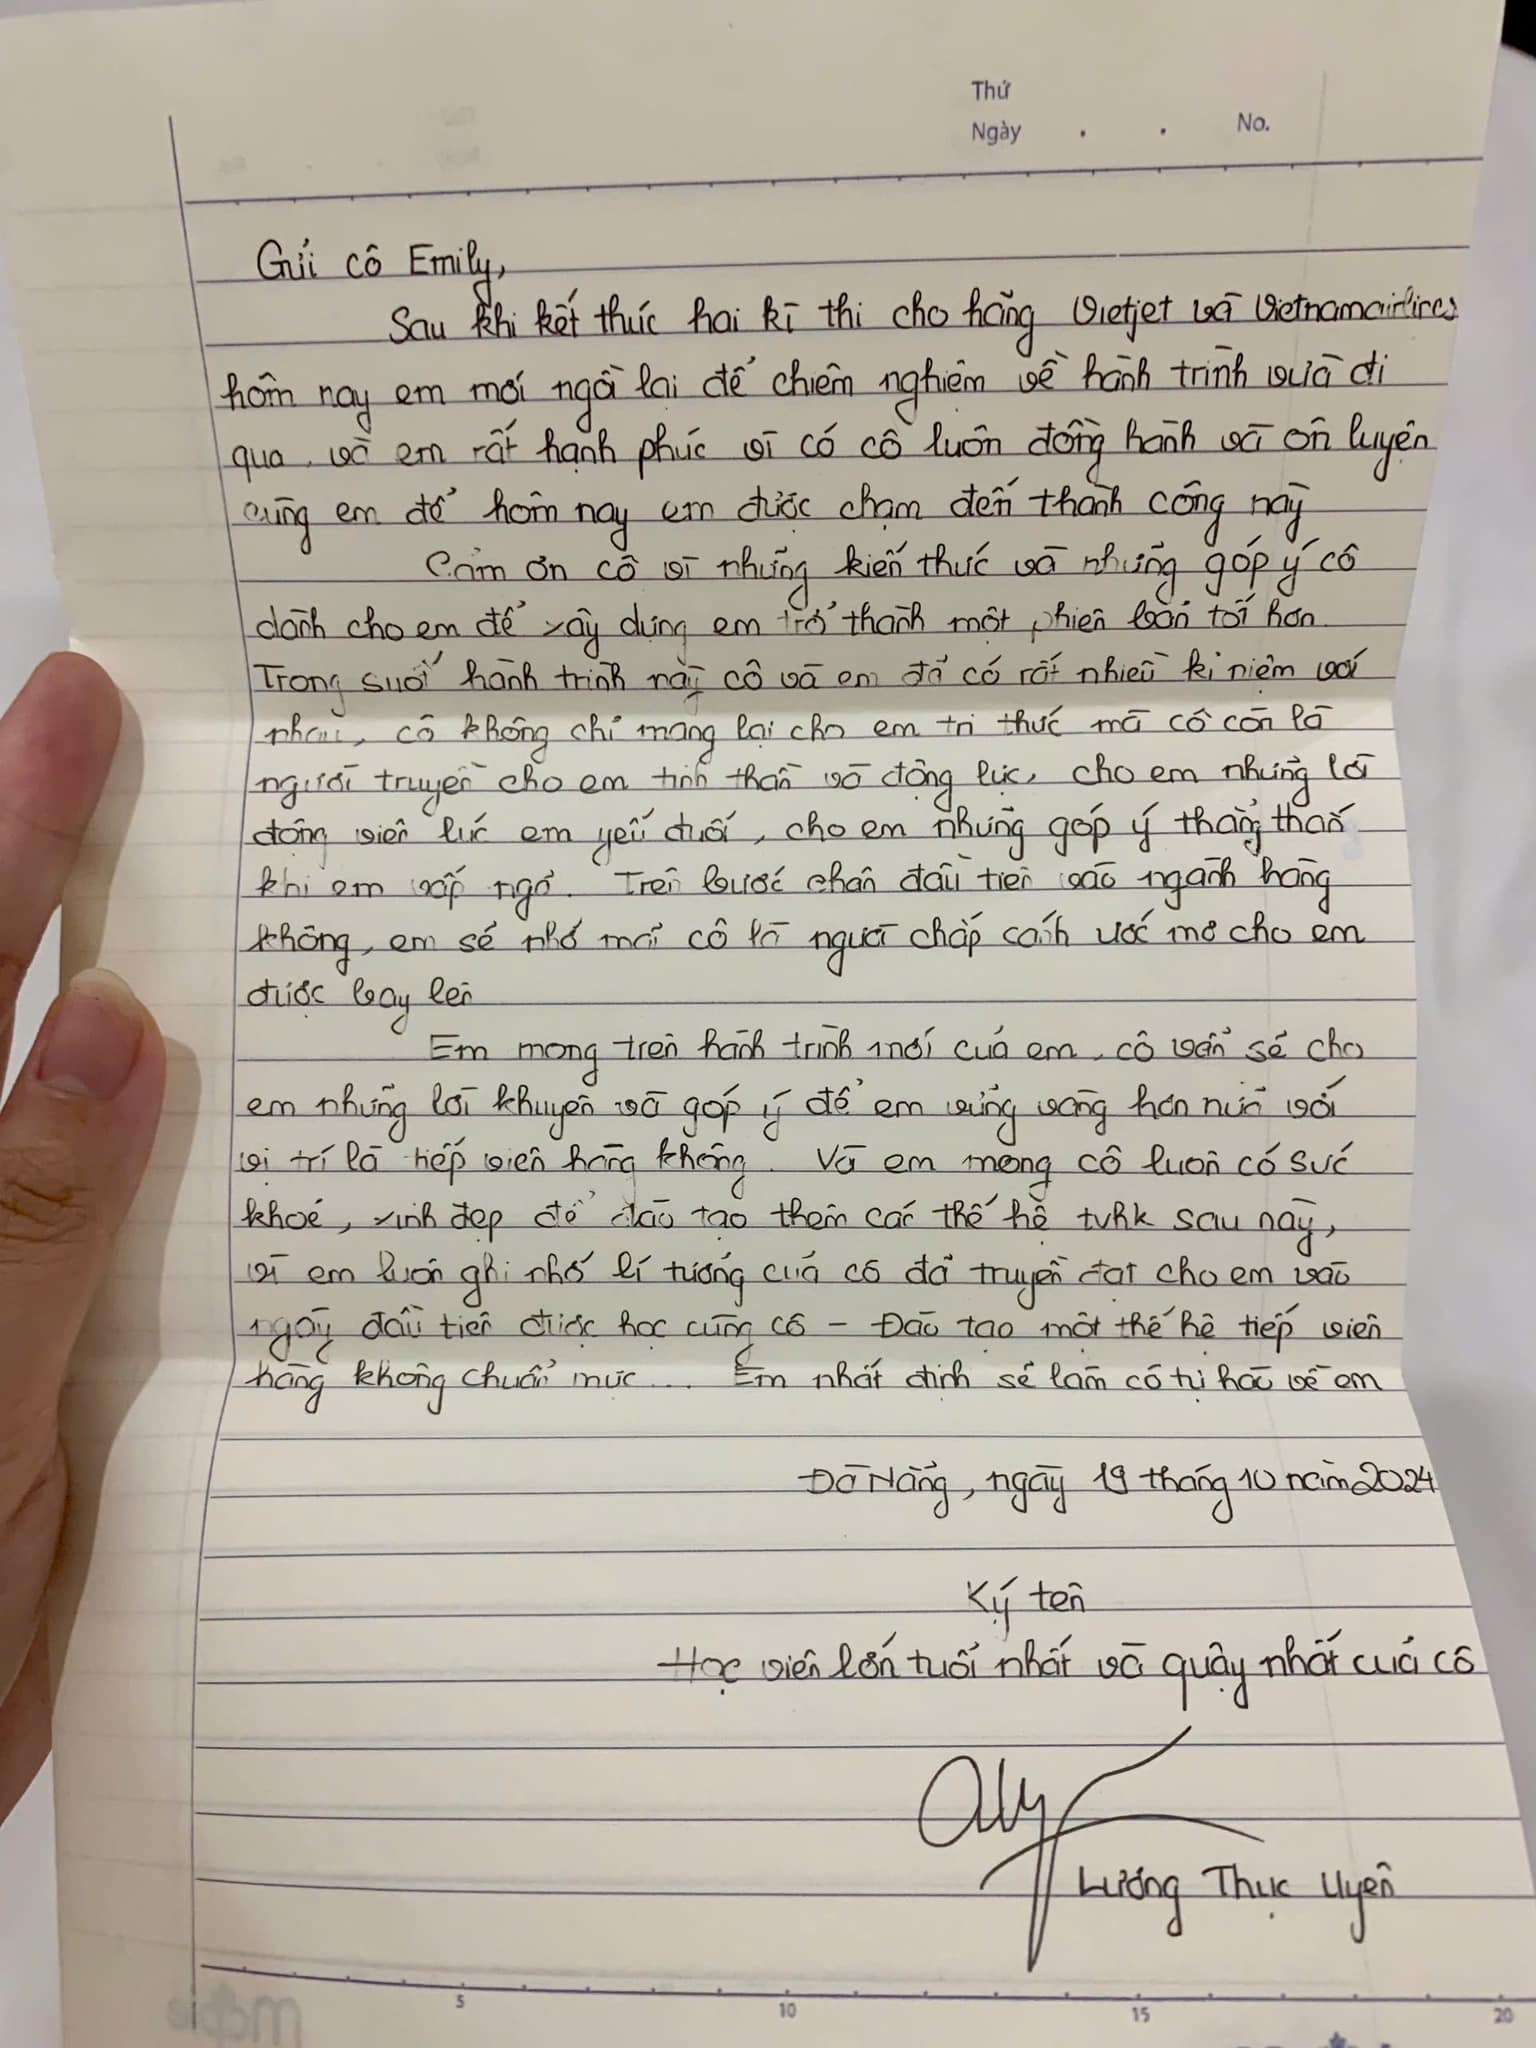 Thứ
Ngày . . No.
Gửi cô Emily,
Sau khi kết thúc hai kì thi cho hãng Vietjet và Vietnamairlines
hôm nay em mới ngồi lại để chiêm nghiệm về hành trình vừa đi
qua. và em rất hạnh phúc vì có cô luôn đồng hành và ôn luyện
cùng em để hôm nay em được chạm đến thành công này
Cảm ơn cô vì những kiến thức và những góp ý cô
dành cho em để xây dựng em trở thành một phiên bản tốt hơn
Trong suốt hành trình này cô và em đã có rất nhiều kỉ niệm với
nhau, cô không chỉ mang lại cho em tri thức mà cô còn là
người truyền cho em tinh thần và động lực, cho em những lời
động viên lúc em yếu đuối, cho em những góp ý thẳng thắn
khi em vấp ngã. Trên bước chân đầu tiên vào ngành hàng
không, em sẽ nhớ mãi cô là người chắp cánh ước mơ cho em
được bay lên
Em mong trên hành trình mới của em, cô vẫn sẽ cho
em những lời khuyên và góp ý để em vững vàng hơn nữa với
vị trí là tiếp viên hàng không. Và em mong cô luôn có sức
khoẻ, xinh đẹp để đào tạo thêm các thế hệ tvhk sau này,
vì em luôn ghi nhớ lí tưởng của cô đã truyền đạt cho em vào
ngày đầu tiên được học cùng cô - Đào tạo một thế hệ tiếp viên
hàng không chuẩn mực... Em nhất định sẽ làm cô tự hào về em
Đà Nẵng, ngày 19 tháng 10 năm 2024
Ký tên
Học viên lớn tuổi nhất và quậy nhất của cô
Lương Thục Uyên
5 10 15 20